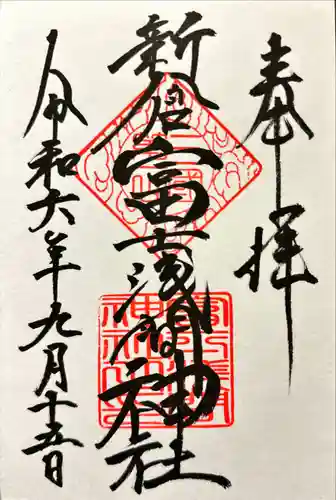 奉拝
新倉富士浅間神社
令和六年九月十五日